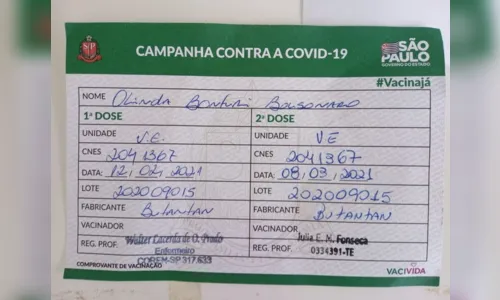 SP
CAMPANHA CONTRA A COVID-19
SÃO PAULO
GOVERNO DO ESTADO
#Vacinajá
NOME Olinda Bonturi Bolsonaro
1ª DOSE 2ª DOSE
UNIDADE V.E. UNIDADE V E
CNES 2041367 CNES 2041367
DATA: 12/02/2021 DATA: 08/03/2021
LOTE 202009015 LOTE 202009015
FABRICANTE Butantan FABRICANTE Butantan
VACINADOR Walter Lacerda de O. Prado VACINADOR Julia E. N. Fonseca
REG. PROF. Enfermeiro REG. PROF. 0334391-TE
COREM-SP 317.633
COMPROVANTE DE VACINAÇÃO
VACIVIDA